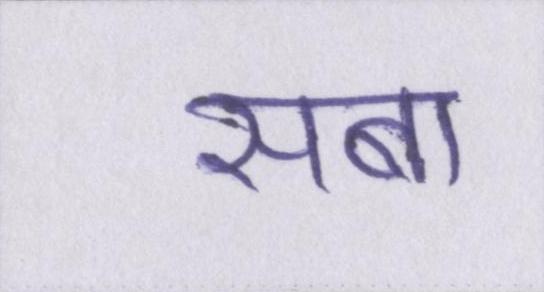 सबा